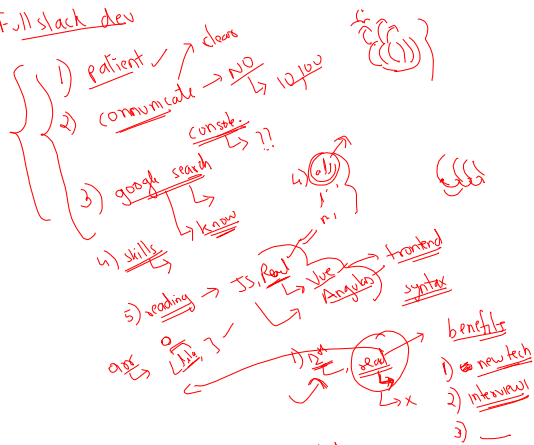 Full stack dev
1) patient
clear
2) communicate → NO
10,100
console.
??
3) google search
know
4)
4) skills
5) reading → JS, React
Vue
Angular
frontend
syntax
arr
1) 1st
read
x
benefits
1) new tech
2) interview
3)